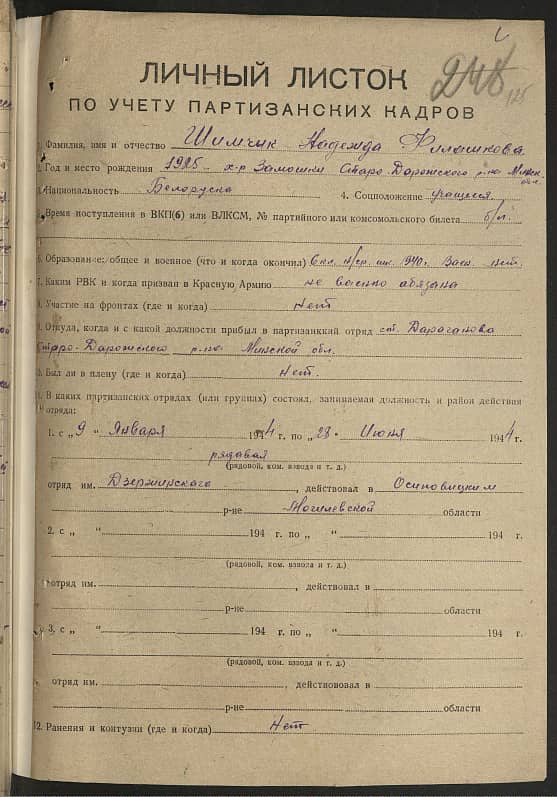 248
125
ЛИЧНЫЙ ЛИСТОК
ПО УЧЕТУ ПАРТИЗАНСКИХ КАДРОВ
1. Фамилия, имя и отчество Шимчик Надежда
2. Год и место рождения 1925 х-р Замошки Старо-Дорожского р-на Минск. обл.
3. Национальность Белоруска 4. Соцположение учащаяся
Время поступления в ВКП(б) или ВЛКСМ, № партийного или комсомольского билета б/п.
6. Образование: общее и военное (что и когда окончил) 6 кл. н/ср. шк. 1940г. Воен. нет.
7. Каким РВК и когда призван в Красную Армию не военно обязана
8. Участие на фронтах (где и когда) Нет
9. Откуда, когда и с какой должности прибыл в партизанкий отряд ст. Дараганова
Старо-Дорожского р-на Минской обл.
Был ли в плену (где и когда) Нет.
В каких партизанских отрядах (или группах) состоял, занимаемая должность и район действия
отряда:
1. с „9 “ Января 1944 г. по „28“ Июня 1944 г.
рядовая
(рядовой, ком. взвода и т. д.)
отряд им. Дзержинскаго, действовал в Осиповицким
р-не Могилевской области
2. с „ “ 194 г. по „ “ 194 г.
(рядовой, ком. взвода и т. д.)
отряд им. , действовал в
р-не области
3. с „ “ 194 г. по „ “ 194 г.
(рядовой, ком. взвода и т. д.)
отряд им. , действововал в
р-не области
12. Ранения и контузии (где и когда) Нет